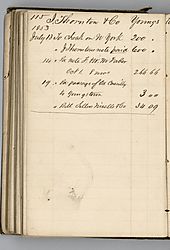 115 J. Thornton & Co Youngs
1853
July 13 To Check on N York 200 "
" Thornton note paid 600 "
14 " To note
Oct 1 266 66
19 " To passage of the family
to Youngstown 3 00
" Bill Sellers & Co 34 09